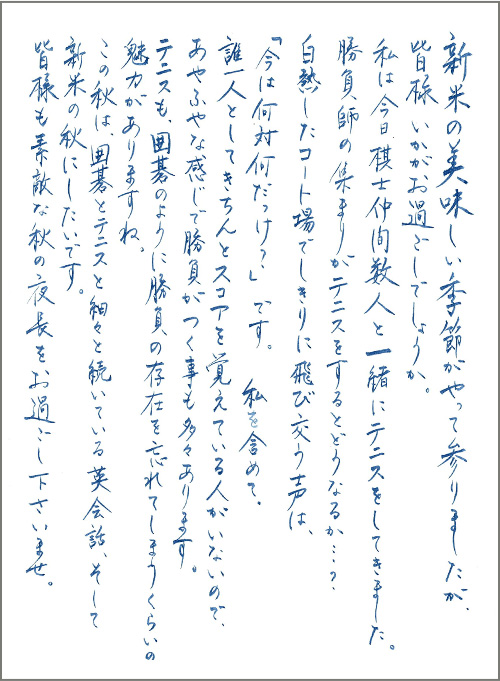 新米の美味しい季節がやって参りましたが、
皆様いかがお過ごしでしょうか。
私は今日棋士仲間数人と一緒にテニスをしてきました。
勝負師の集まりがテニスをするとどうなるか…？
白熱したコート場でしきりに飛び交う声は、
「今は何対何だっけ？」です。 私を含めて、
誰一人としてきちんとスコアを覚えている人がいないので、
あやふやな感じで勝負がつく事も多々あります。
テニスも、囲碁のように勝負の存在を忘れてしまうくらいの
魅力がありますね。
この秋は、囲碁とテニスと細々と続いている英会話、そして
新米の秋にしたいです。
皆様も素敵な秋の夜長をお過ごし下さいませ。